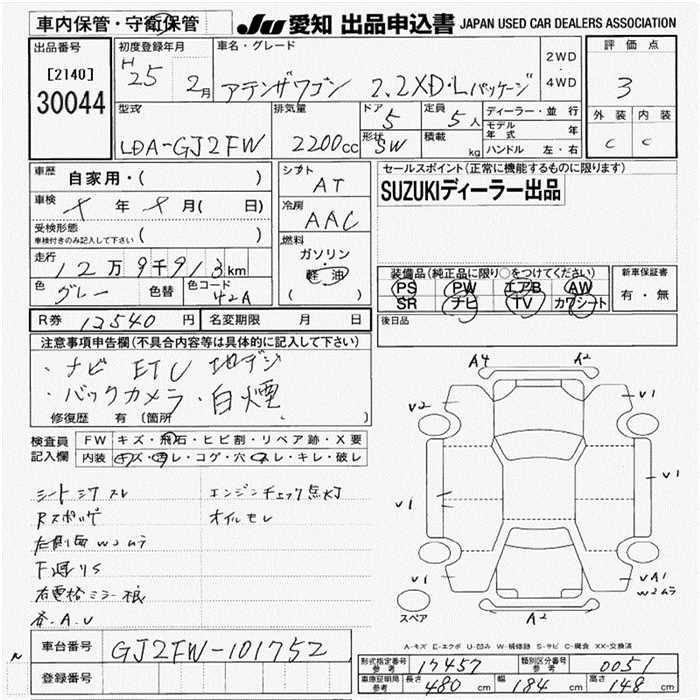 車内保管・守衛保管
JU 愛知 出品申込書 JAPAN USED CAR DEALERS ASSOCIATION
出品番号
[2140]
30044
初度登録年月
H 25 2月
車名・グレード
アテンザワゴン 2.2XD・Lパッケージ
2WD
・
4WD
評価点
3
外装 内装
C C
型式
LDA-GJ2FW
排気量
2200cc
ドア
5
定員
5人
形状
SW
積載
kg
ディーラー・並行
モデル年式 年
ハンドル 左・右
車歴
自家用・( )
車検
年 月( 日)
受検形態
車検付きのみ記入して下さい ( )
走行
12万9千913km
色
グレー
色替
色コード
42A
シフト
AT
冷房
AAC
燃料
ガソリン・
軽油
( )
セールスポイント(正常に機能するものに限ります)
SUZUKIディーラー出品
装備品(純正品に限り○をつけてください)
PS PW エアB AW
SR ナビ TV カワシート
新車保証書
有・無
後日品
R券 12540円
名変期限 月 日
注意事項申告欄(不具合内容等は具体的に記入して下さい)
・ナビ ETC 地デジ
・バックカメラ ・白煙
修復歴 有 (箇所 )
検査員
記入欄
FW キズ・飛石・ヒビ割・リペア跡・X要
内装 キズ・汚レ・コゲ・穴・スレ・キレ・破レ
シートシワスレ
エンジンチェック点灯
オイルモレ
左側面Wムラ
下廻りS
右電格ミラー損
A4 A2
V2 V1
V1 V1
V1 VA1
Wムラ
A2
スペア
A-キズ E-エクボ U-凹み W-補修跡 S-サビ C-腐食 XX-交換済
車台番号
GJ2FW-101752
登録番号
形式指定番号
参考
17457
類別区分番号
参考
0051
車庫証明用
参考
長さ 480cm
幅 184cm
高さ 148cm